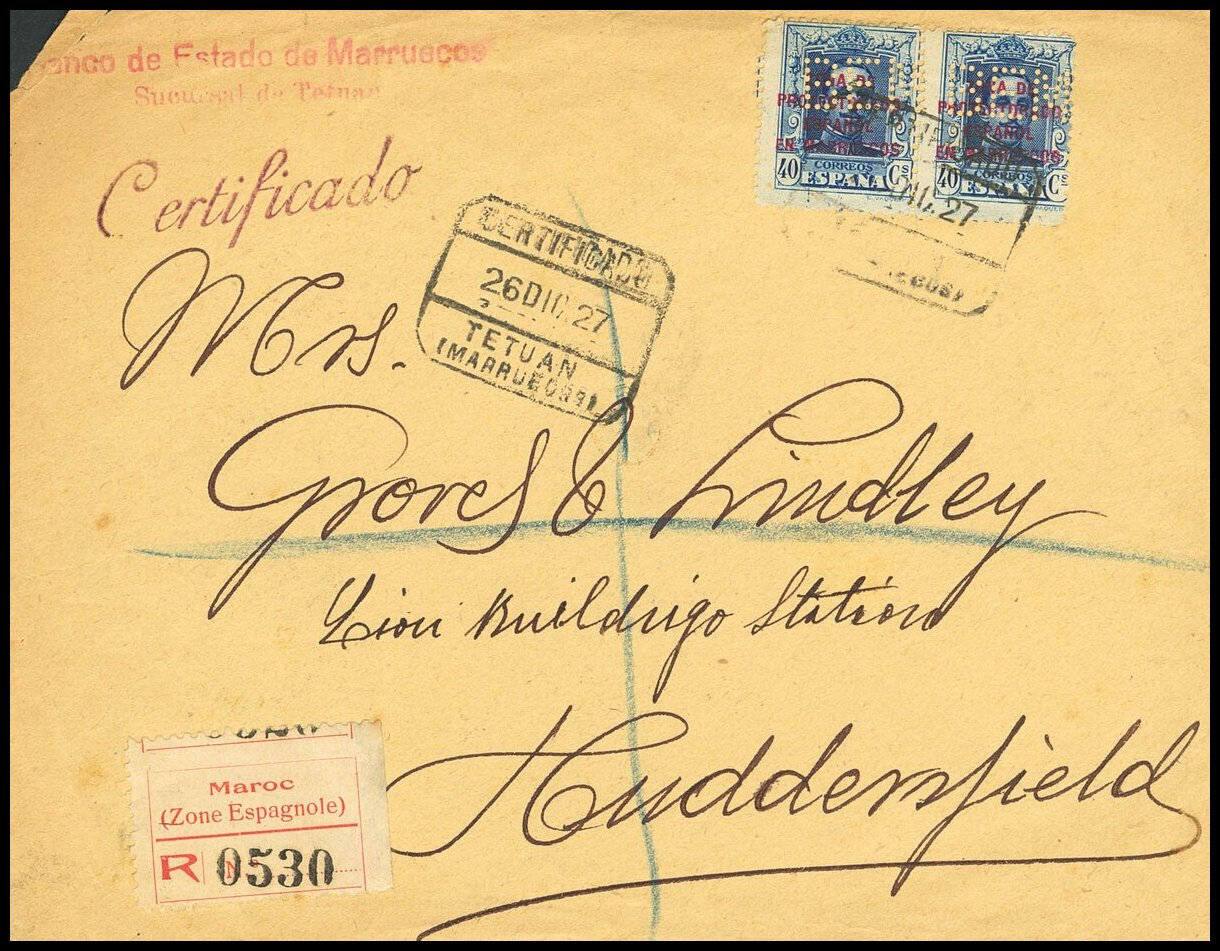 Banco de Estado de Marruecos
Sucursal de Tetuan
Certificado
ZONA DE
PROTECTORADO
ESPAÑOL
EN MARRUECOS
CORREOS
40 Cs
ESPAÑA
ZONA DE
PROTECTORADO
ESPAÑOL
EN MARRUECOS
CORREOS
40 Cs
ESPAÑA
CERTIFICADO
26 DIC. 27
TETUAN
(MARRUECOS)
DIC. 27
Mrs.
Groves & Lindley
Lion Buildrigo Station
Huddersfield
Maroc
(Zone Espagnole)
R No 0530